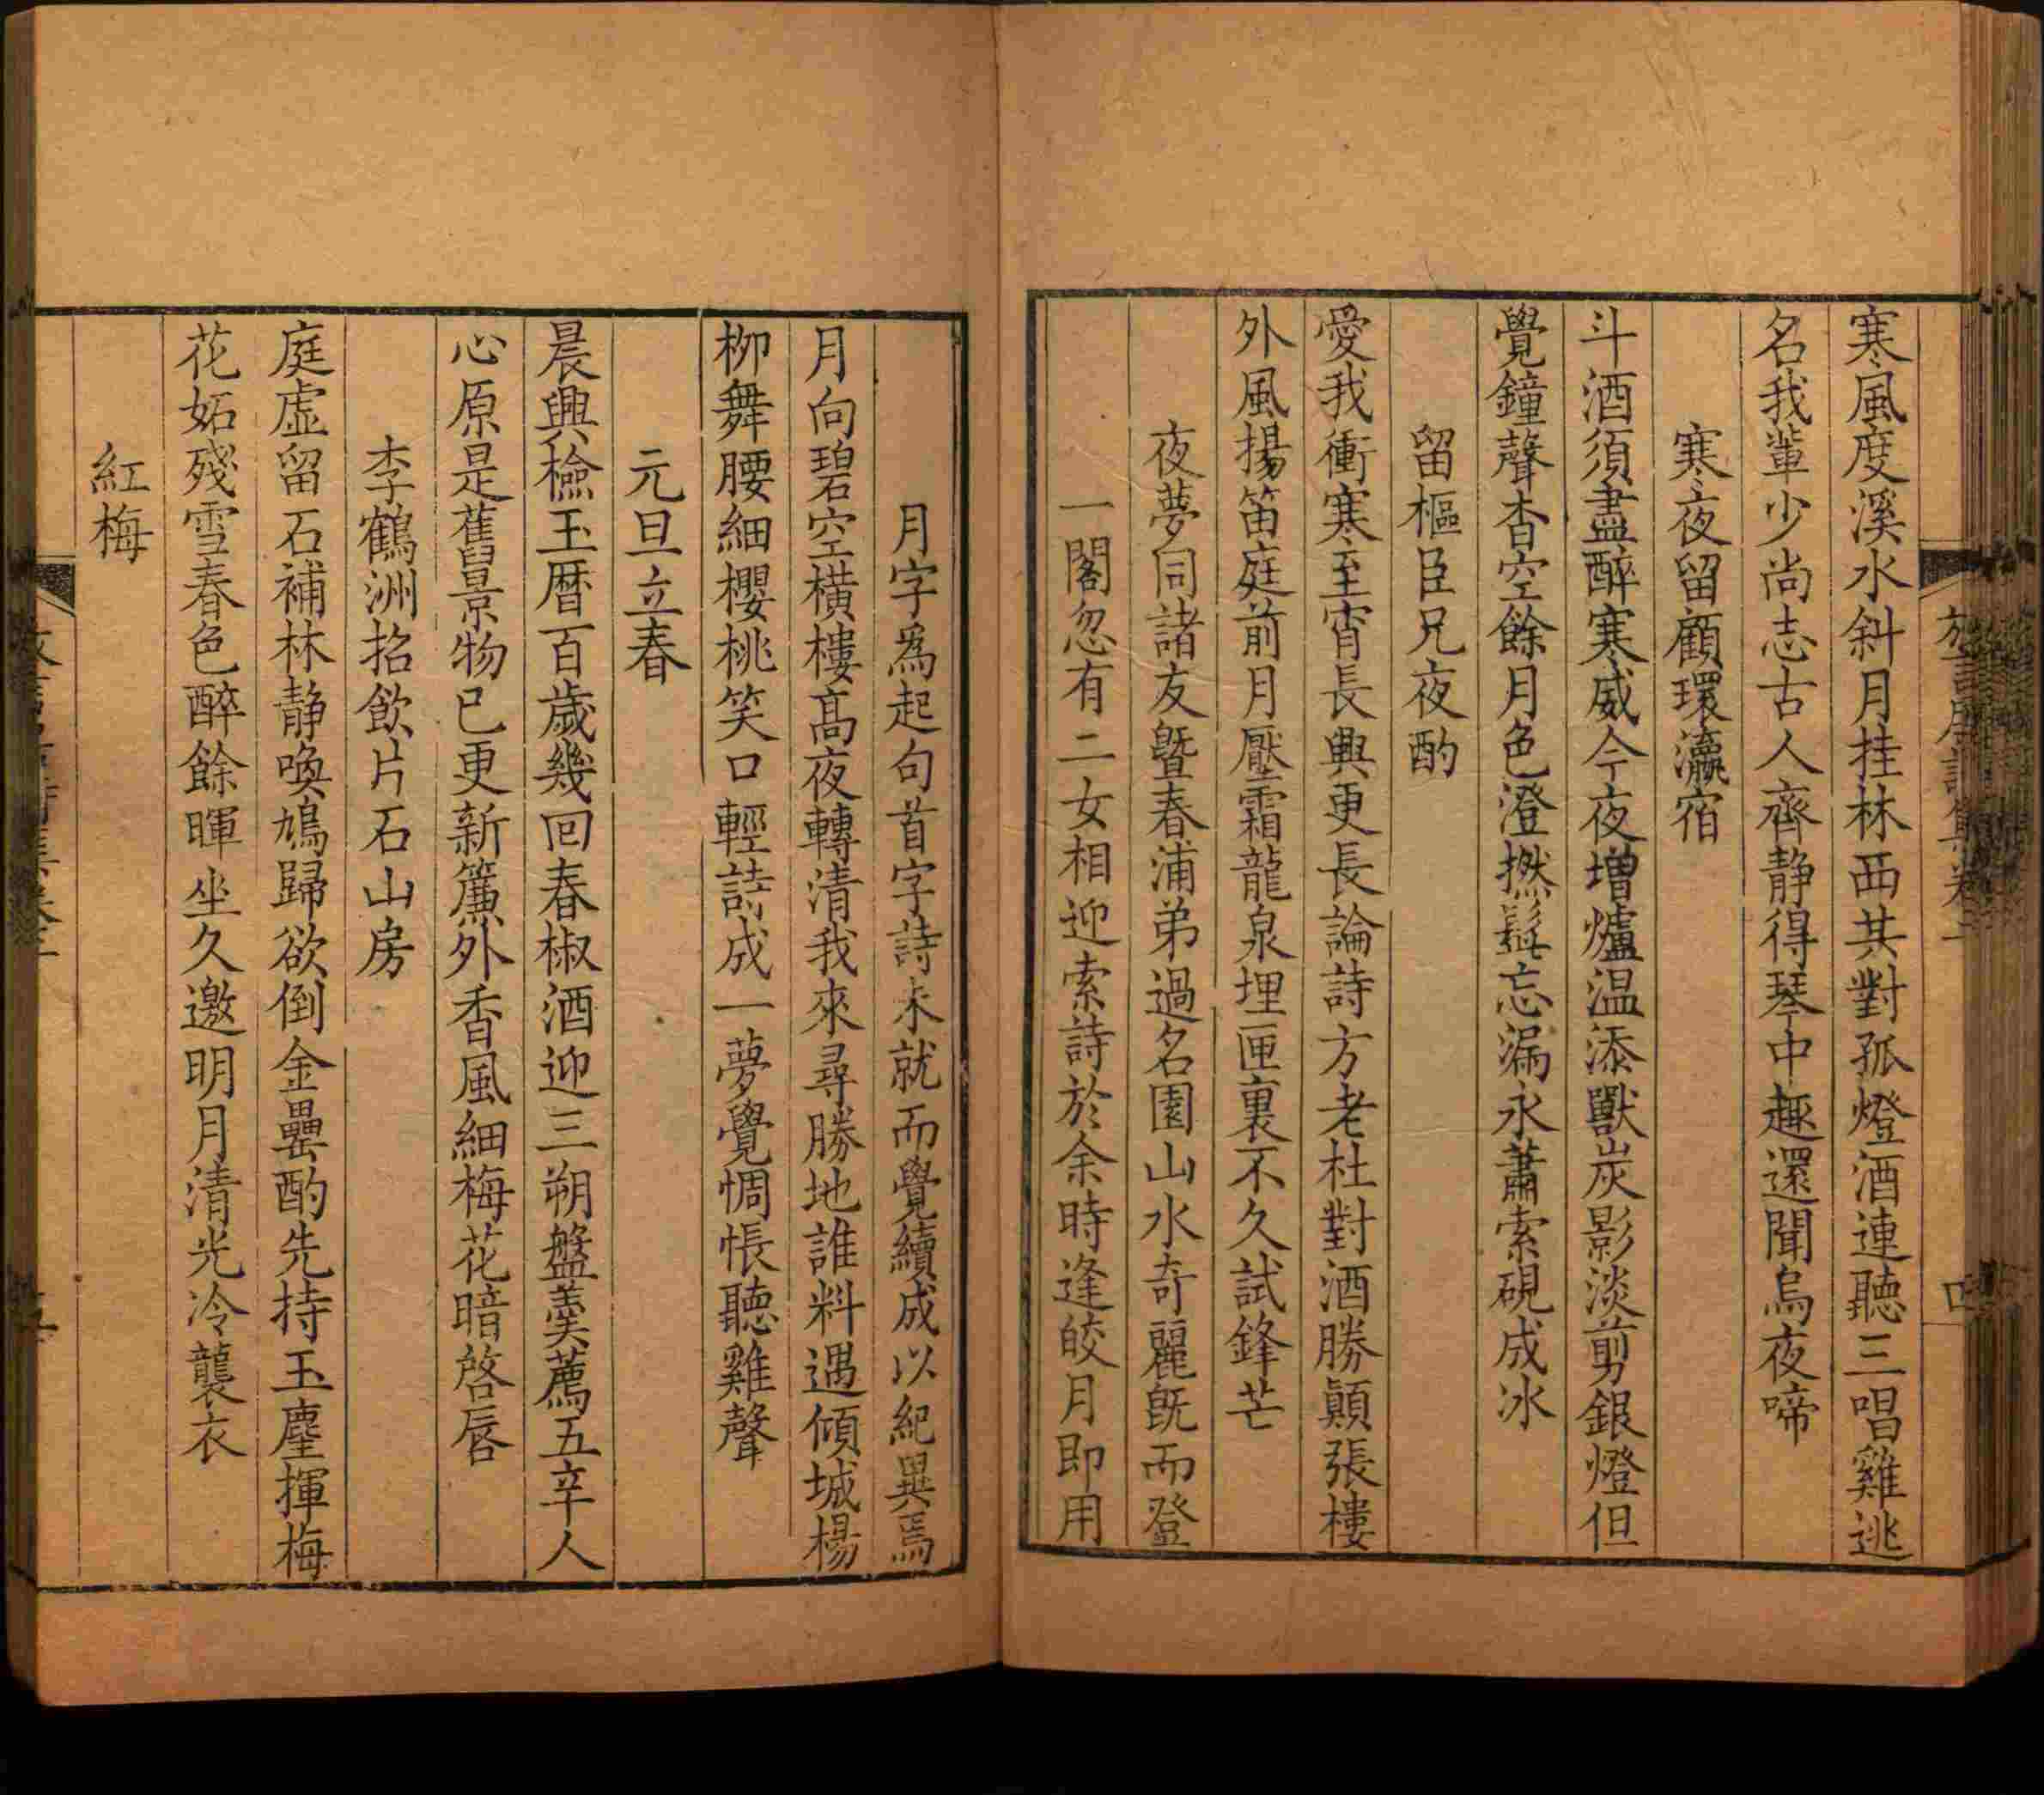 寒風度溪水斜月挂林西共對孤燈酒連聽三唱雞逃
名我輩少尚志古人齊静得琴中趣還聞烏夜啼
寒夜留顧環瀛宿
斗酒須盡醉寒威今夜增爐温添獸炭影淡剪銀燈但
覺鐘聲杳空餘月色澄撚髭忘漏永蕭索硯成冰
留樞臣兄夜酌
愛我衝寒至宵長興更長論詩方老杜對酒勝顛張樓
外風揚笛庭前月壓霜龍泉埋匣裏不久試鋒芒
夜夢同諸友暨春浦弟過名園山水奇麗旣而登
一閣忽有二女相迎索詩於余時逢皎月即用
月字爲起句首字詩未就而覺續成以紀異焉
月向碧空橫樓高夜轉清我來尋勝地誰料遇傾城楊
柳舞腰細櫻桃笑口輕詩成一夢覺惆悵聽雞聲
元旦立春
晨興檢玉曆百歲幾回春椒酒迎三朔盤羹薦五辛人
心原是舊景物已更新簾外香風細梅花暗啓唇
李鶴洲招飲片石山房
庭虛留石補林静喚鳩歸欲倒金罍酌先持玉麈揮梅
花妬殘雪春色醉餘暉坐久邀明月清光冷襲衣
紅梅